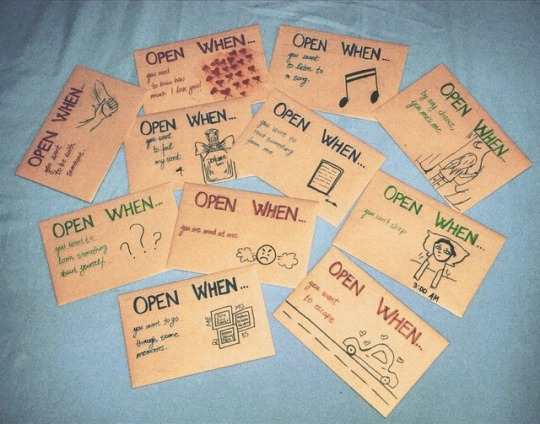 OPEN WHEN...
you need
to know how
much I love you!
OPEN WHEN...
you want
to listen to
a song.
OPEN WHEN...
you want
to be with
someone.
OPEN WHEN...
you want
to feel
my scent
OPEN WHEN...
you want to
read something
from me.
OPEN WHEN...
by any chance,
you miss me.
OPEN WHEN...
you want to
learn something
about yourself.
???
OPEN WHEN...
you are mad at me.
OPEN WHEN...
you can't sleep
3:00 AM
OPEN WHEN...
you want to go
through some
memories.
OPEN WHEN...
you want
to escape